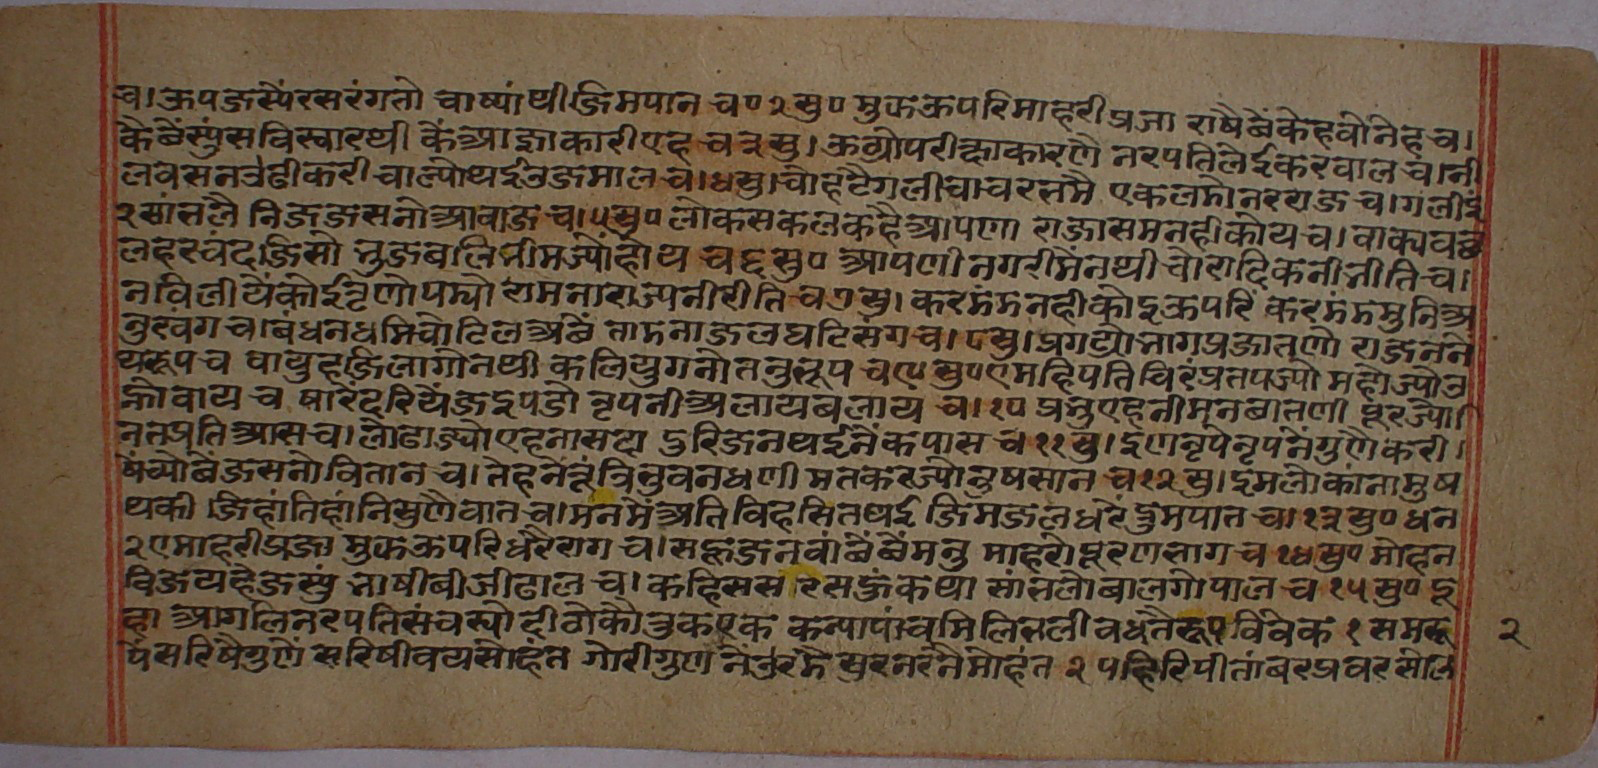 च। ऊपजस्यैंरसरंगतो चाष्यांथीजिमपान च० २ सु० मुऊऊपरिमाहरीप्रजा राषैबैंकेहवोनेह च।
कैबैंस्युंसविस्तारथी कैंआज्ञाकारीएह च ३ सु। ऊग्रोपरीक्षाकारणै नरपतिलेईकरवाल च। नी
लवसनत्रढीकरी चाल्योथईउजमाल च। ४ सु। चोहटैगलीचाचरतमै एकलमोनरराज च। गली
२ सांभलै निजजसनोआवाज च। ५ सु० लोकसकलकहैआपणा राजासमनहीकोय च। वाक्य
लहरचंदजिसो भुजबलिभीमज्योंहोय च ६ सु० आपणीनगरीमैनथी चोरादिकनीभीति च।
नविलीयैंकोईतृणोपम्यौ रामनाराज्यनीरीति च ७ सु। करमंमनहीकोइऊपरि करमंममुनिअ
नुरवंग च। बंधनधमिचोटिलअबैं तामनाजलघटिसंग च। ८ सु। प्रगट्योभागप्रजातणो राजननैं
यरूप च षायुहजिलागोनथी कलियुगनोतनुलूप च ९ सु० एमहिपतिचिरंप्रतपज्यो महोज्योउ
न्होवाय च षारेदरियैंजइपडो नृपनीअलायबलाय च। १० प्रभुएहनीमनबातणी पूरज्यो।
नतप्रतिआस च। लोढाज्योएहनासदा दुरिजनथईनैंकपास च ११ सु। इणनृपैनृपनैंगुणैकरी।
षेंच्योबैंजसनोवितान च। तेहनैंतूंत्रिभुवनधणी मतकरज्योनुषसान च १२ सु। इंमलोकांनामुष
थकी जिहांतिहांनिसुणैवात च। मनमैंअतिविहसितथई जिमजलधरेंद्रुमपात च। १३ सु० धन
२ एमाहरीप्रजा मुऊऊपरिधरैराग च। सहूजनवांबैंबैंमनु माहरोपूरणभाग च १४ सु० मोहन
विजयहेजस्युं भाषीबीजीढाल च। कहिस सरिसहुंकथा सांभलोबालगोपाल च १५ सु० दू
हा आगलिनरपतिसंचस्यो दीठोकौतुकएक कन्यापांचमिलिभली वधतैरूपविवेक १ समरू
पेंसरिषैगुणै सरिषीवयसोहंत गोरीगुण नरनैमोहंत २ पहिरिपीतांबरप्रवर सोलि
२